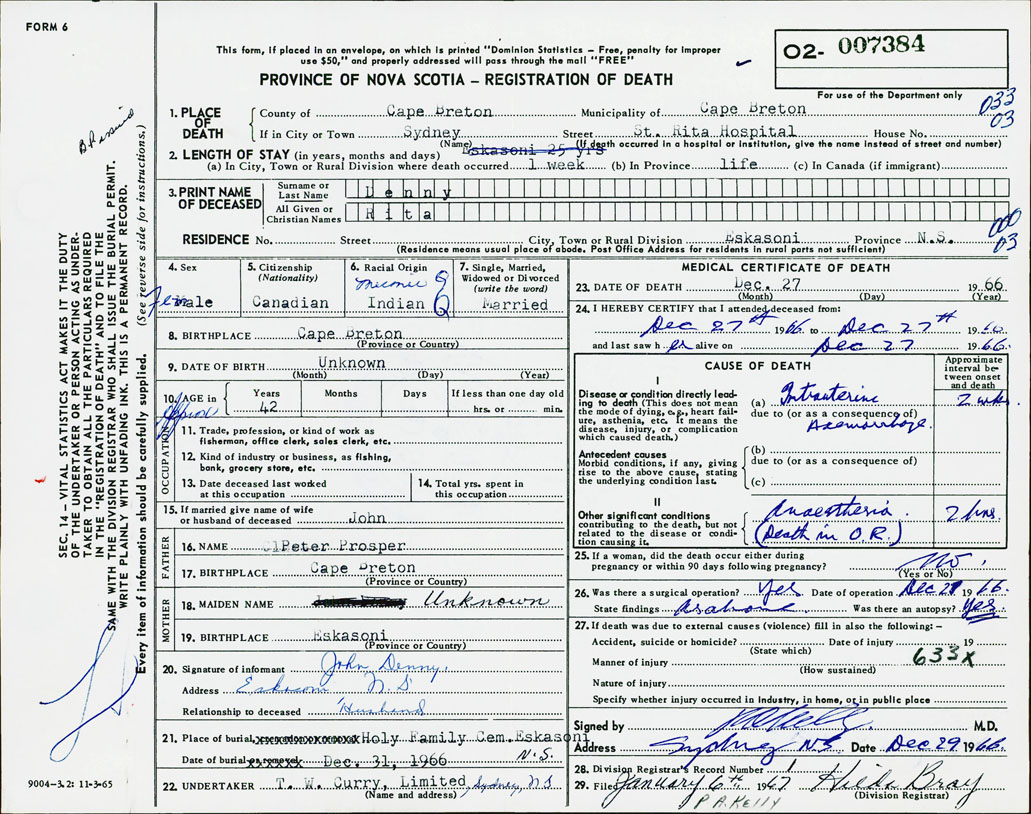 FORM 6
This form, if placed in an envelope, on which is printed "Dominion Statistics – Free, penalty for improper
use $50," and properly addressed will pass through the mail "FREE"
PROVINCE OF NOVA SCOTIA – REGISTRATION OF DEATH
O2- 007384
For use of the Department only
033
03
1. PLACE OF DEATH
County of Cape Breton Municipality of Cape Breton
If in City or Town Sydney Street St. Rita Hospital House No.
(Name) (If death occurred in a hospital or institution, give the name instead of street and number)
2. LENGTH OF STAY (in years, months and days) Eskasoni 25 yrs
(a) In City, Town or Rural Division where death occurred 1 week (b) In Province life (c) In Canada (if immigrant)
3. PRINT NAME OF DECEASED
Surname or Last Name Denny
All Given or Christian Names Rita
000
03
RESIDENCE No. Street City, Town or Rural Division Eskasoni Province N.S.
(Residence means usual place of abode. Post Office Address for residents in rural parts not sufficient)
4. Sex
Female
5. Citizenship
(Nationality)
Canadian
6. Racial Origin
Micmac
Indian
7. Single, Married,
Widowed or Divorced
(write the word)
Married
8. BIRTHPLACE Cape Breton
(Province or Country)
9. DATE OF BIRTH Unknown
(Month) (Day) (Year)
10. AGE in
Years
42
Months
Days
If less than one day old
hrs. or min.
OCCUPATION
11. Trade, profession, or kind of work as
fisherman, office clerk, sales clerk, etc.
12. Kind of industry or business, as fishing,
bank, grocery store, etc.
13. Date deceased last worked
at this occupation
14. Total yrs. spent in
this occupation
15. If married give name of wife
or husband of deceased John
FATHER
16. NAME Peter Prosper
17. BIRTHPLACE Cape Breton
(Province or Country)
MOTHER
18. MAIDEN NAME Unknown
19. BIRTHPLACE Eskasoni
(Province or Country)
20. Signature of informant John Denny,
Address Eskasoni N.S
Relationship to deceased Husband
21. Place of burial Holy Family Cem. Eskasoni
Date of burial Dec. 31, 1966 N.S.
22. UNDERTAKER T. W. Curry, Limited Sydney, NS
(Name and address)
MEDICAL CERTIFICATE OF DEATH
23. DATE OF DEATH Dec. 27 1966
(Month) (Day) (Year)
24. I HEREBY CERTIFY that I attended deceased from:
Dec 27th 1966 to Dec 27th 1966
and last saw her alive on Dec 27 1966.
CAUSE OF DEATH
Approximate
interval be-
tween onset
and death
I
Disease or condition directly lead-
ing to death (This does not mean
the mode of dying, e.g., heart fail-
ure, asthenia, etc. It means the
disease, injury, or complication
which caused death.)
(a) Intrauterine 2 wks.
due to (or as a consequence of)
Haemorrhage.
Antecedent causes
Morbid conditions, if any, giving
rise to the above cause, stating
the underlying condition last.
(b)
due to (or as a consequence of)
(c)
II
Other significant conditions
contributing to the death, but not
related to the disease or condi-
tion causing it.
Anaesthesia. 2 hrs.
(Death in O.R.)
25. If a woman, did the death occur either during
pregnancy or within 90 days following pregnancy? No.
(Yes or No)
26. Was there a surgical operation? Yes Date of operation Dec 27 1966.
State findings Was there an autopsy? Yes
27. If death was due to external causes (violence) fill in also the following: –
Accident, suicide or homicide? Date of injury 19
(State which)
Manner of injury 633X
(How sustained)
Nature of injury
Specify whether injury occurred in industry, in home, or in public place
Signed by M.D.
Address Sydney NS Date Dec 29 1966.
28. Division Registrar's Record Number 1
29. Filed January 6th 1967 Hilda Bray
(Division Registrar)
P A. KELLY
SEC. 14 – VITAL STATISTICS ACT MAKES IT THE DUTY
OF THE UNDERTAKER OR PERSON ACTING AS UNDER-
TAKER TO OBTAIN ALL THE PARTICULARS REQUIRED
IN THE "REGISTRATION OF DEATH" AND TO FILE THE
SAME WITH THE DIVISION REGISTRAR WHO SHALL ISSUE THE BURIAL PERMIT.
WRITE PLAINLY WITH UNFADING INK. THIS IS A PERMANENT RECORD.
Every item of information should be carefully supplied. (See reverse side for instructions.)
9004-3.2: 11-3-65